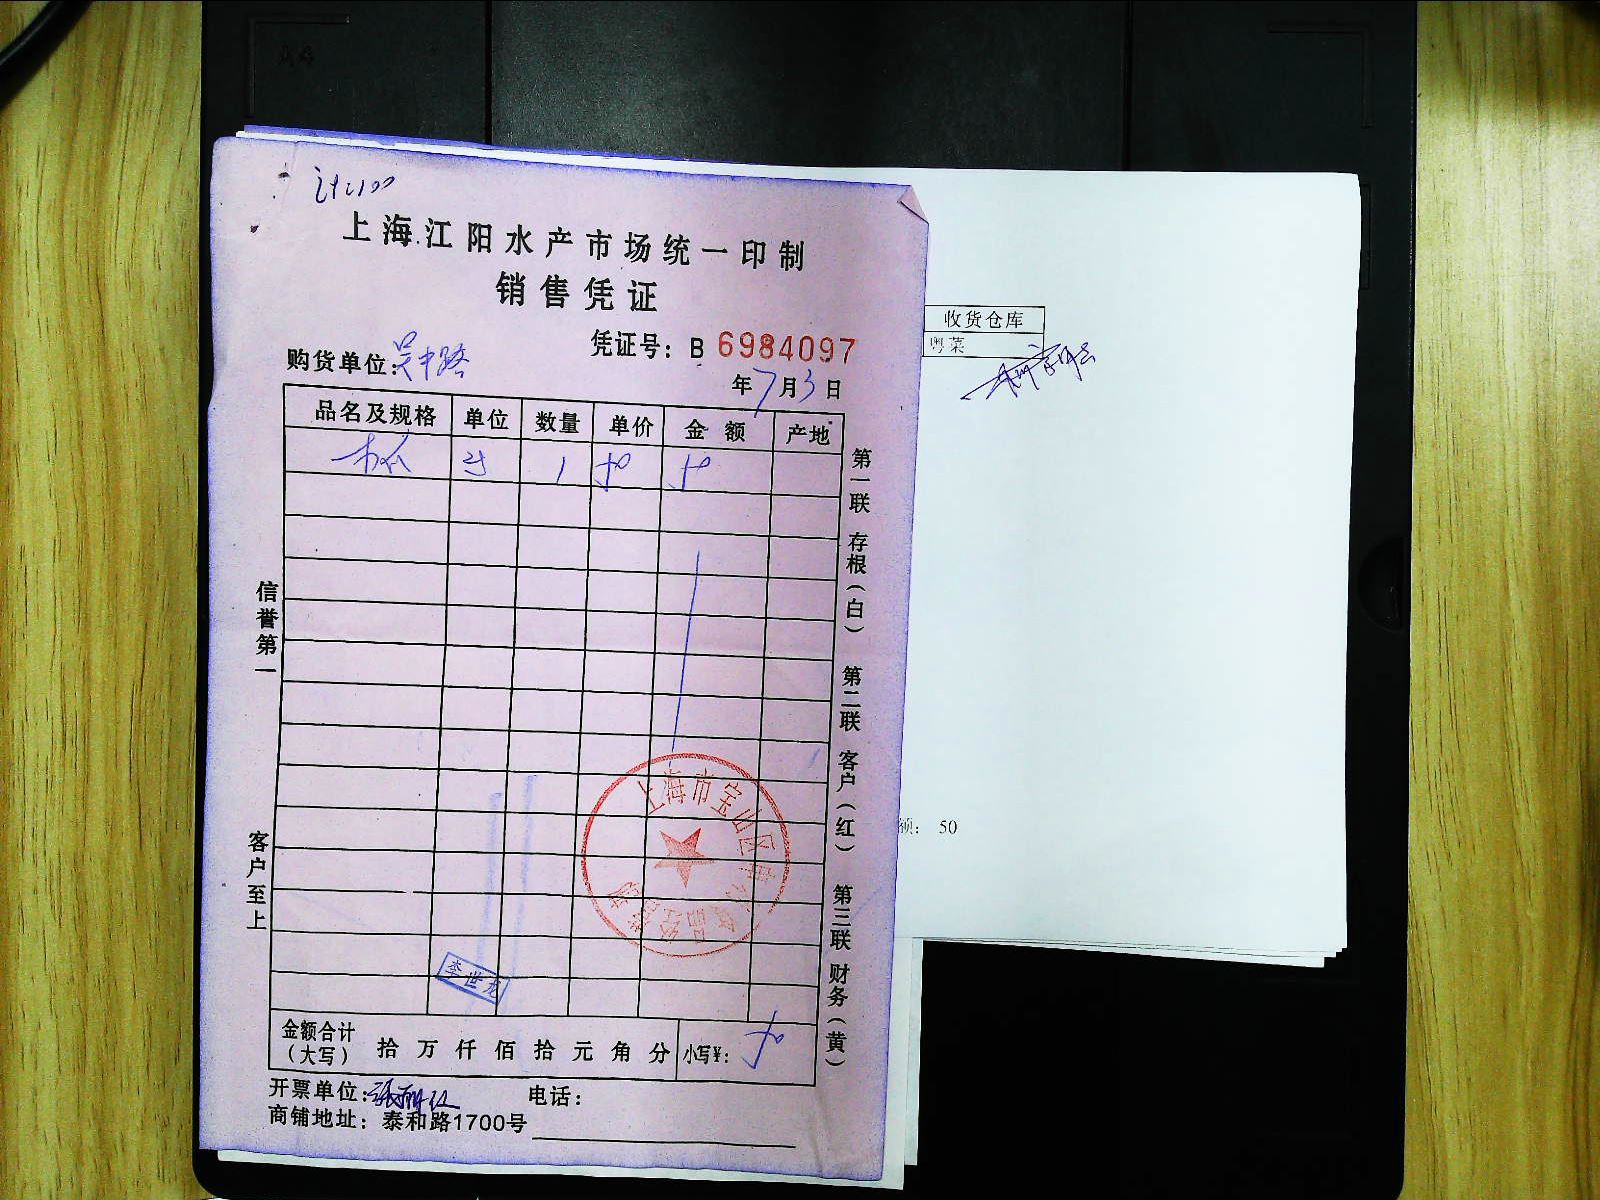 上海江阳水产市场统一印制
销售凭证
凭证号：B 6984097
购货单位：吴中路
年7月3日
品名及规格 单位 数量 单价 金额 产地
木瓜 1 50 50
第一联 存根（白） 第二联 客户（红） 第三联 财务（黄）
信誉第一
客户至上
上海市宝山区
李世龙
金额合计（大写） 拾 万 仟 佰 拾 元 角 分 小写¥：50
开票单位：张丽红
电话：
商铺地址：泰和路1700号
收货仓库
粤菜
额： 50
A4